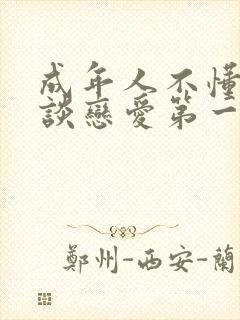 成年人不懂
談戀愛第一
鄭州-西安-蘭